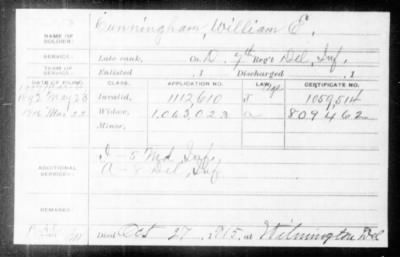 Cunningham, William E.
NAME OF SOLDIER:
SERVICE: Late rank, Co. D, 7th Reg't Del. Inf.
TERM OF SERVICE: Enlisted , 1 Discharged , 1
DATE OF FILING. CLASS. APPLICATION NO. LAW. CERTIFICATE NO.
1892 May 23 Invalid, 1112,610 1059,514
Mar 22 Widow, 1,063,023 809462
Minor,
ADDITIONAL SERVICES: I- 5 Md. Inf.
A- 8 Del. Inf
REMARKS:
Died Oct 27, at Wilmington Del